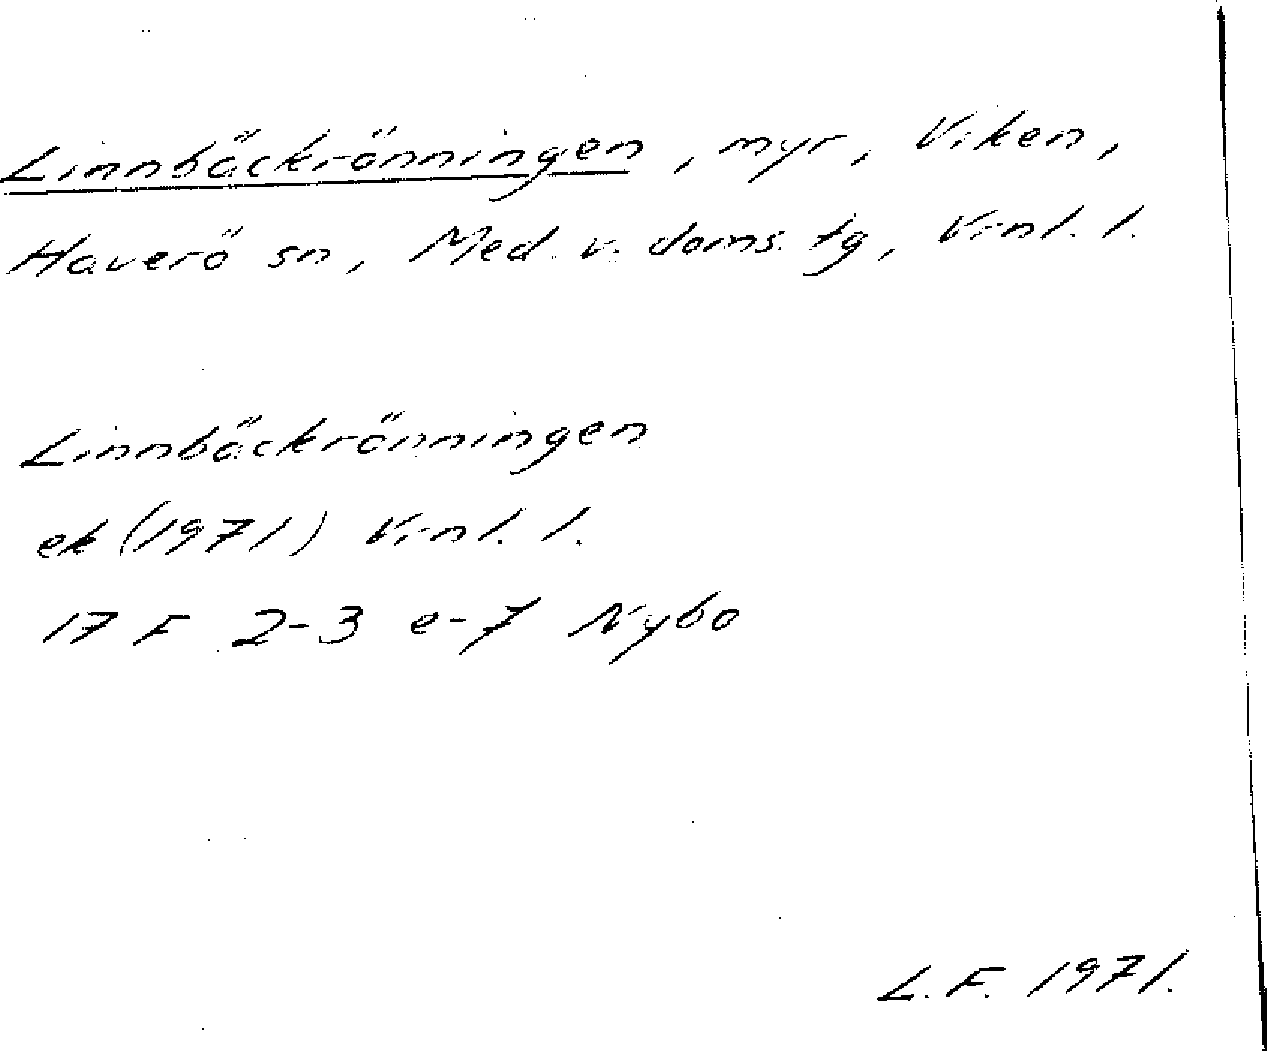 Linnbäckrönningen, myr, Viken,
Haverö sn, Med. v. doms. tg, Vrnl. l.
Linnbäckrönningen
ek (1971) Vrnl. l.
17 F 2-3 e-f Nybo
L. F. 1971.